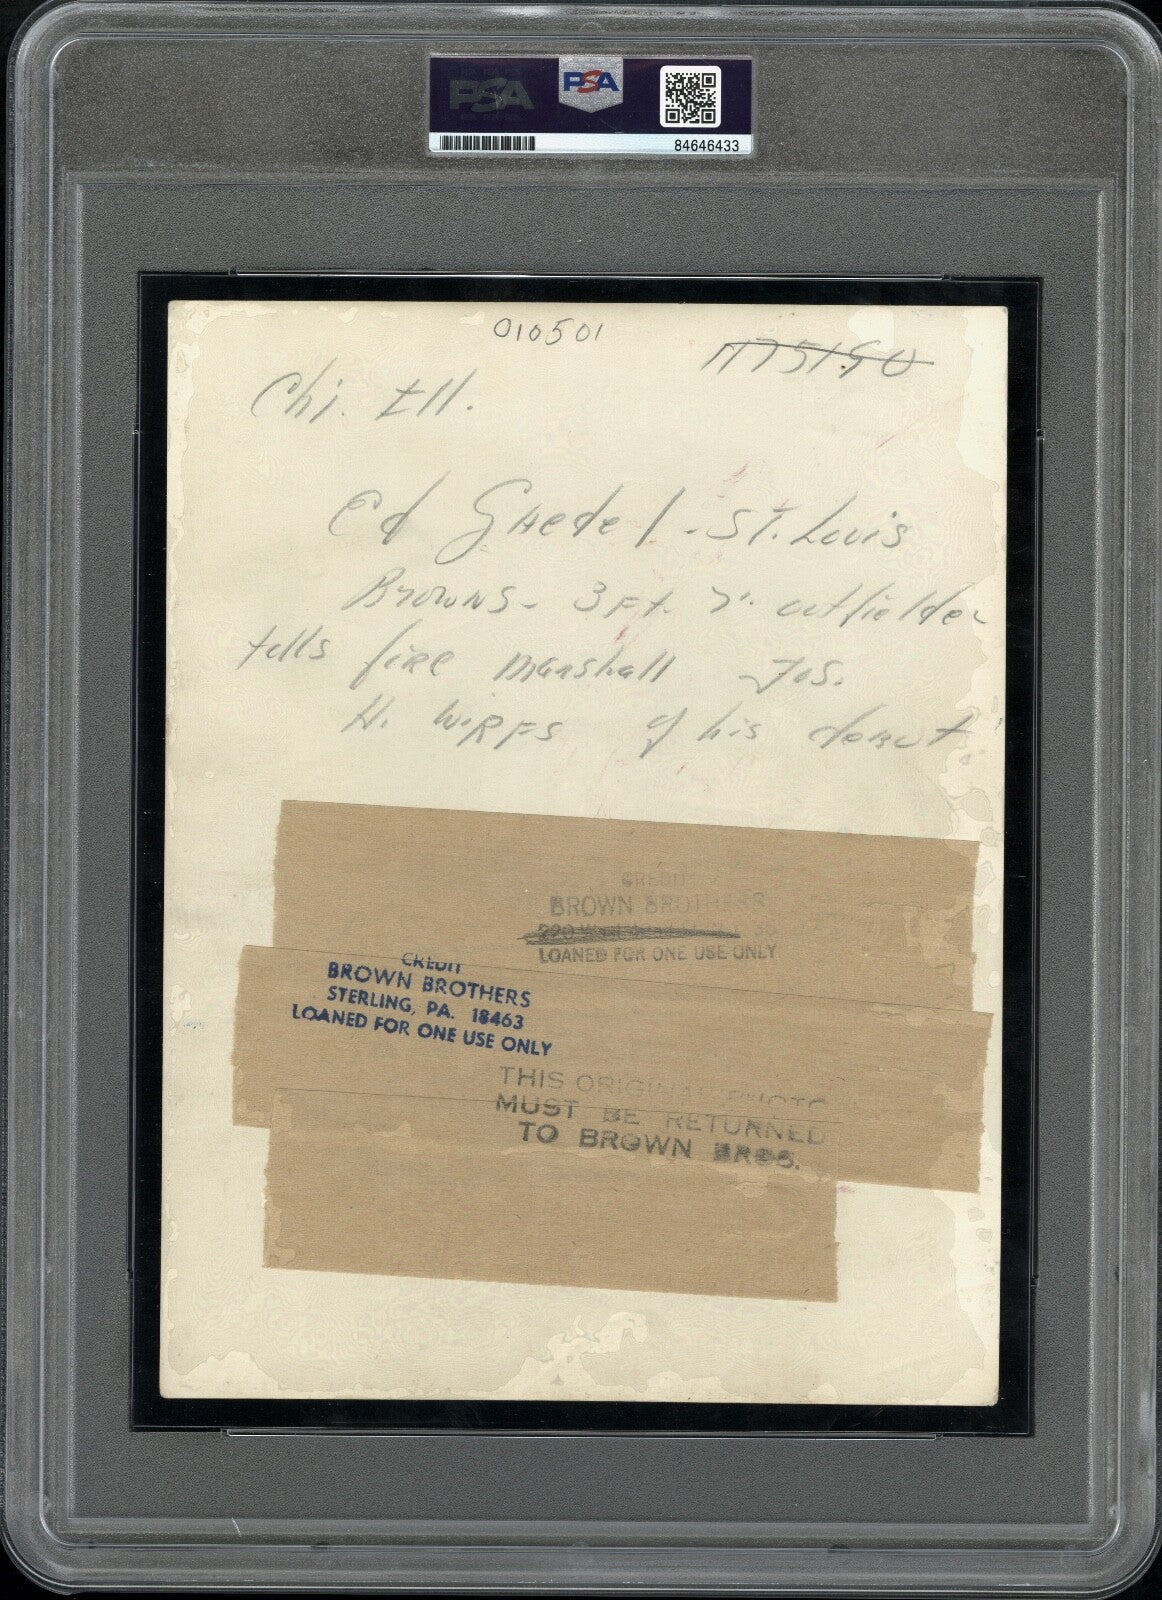 PSA
PSA
84646433
010501
1175190
Chi. Ill.
Ed Gaedel - St. Louis
Browns - 3 Ft. 7". outfielder
tells fire Marshall Jos.
H. Wirfs of his debut.
CREDIT
BROWN BROTHERS
220 West
LOANED FOR ONE USE ONLY
CREDIT
BROWN BROTHERS
STERLING, PA. 18463
LOANED FOR ONE USE ONLY
THIS ORIGINAL PHOTO
MUST BE RETURNED
TO BROWN BROS.